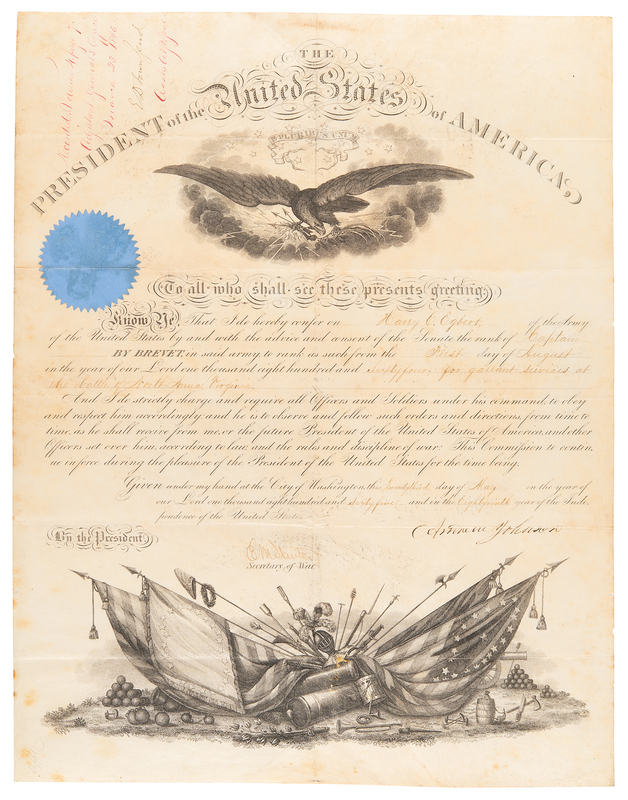 THE
United States
PRESIDENT of the
of AMERICA,
E PLURIBUS UNUM
To all who shall see these presents greeting:
Know Ye, That I do hereby confer on Harry C. Egbert of the Army
of the United States by and with the advice and consent of the Senate the rank of Captain
BY BREVET, in said army, to rank as such from the First day of August
in the year of our Lord one thousand eight hundred and sixty four for gallant services at
the battle of North Anna Virginia
And I do strictly charge and require all Officers and Soldiers under his command, to obey
and respect him accordingly, and he is to observe and follow such orders and directions, from time to
time, as he shall receive from me, or the future President of the United States of America, and other
Officers set over him, according to law, and the rules and discipline of war. This Commission to contin-
ue in force during the pleasure of the President of the United States for the time being.
Given under my hand at the City of Washington, the day of May in the year of
our Lord one thousand eight hundred and sixty five and in the Eighty ninth year of the Inde-
pendence of the United States
Andrew Johnson
By the President,
Secretary of War